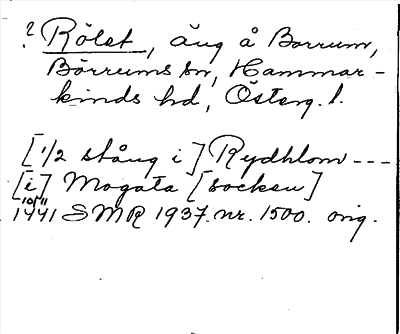 ? Rölet, äng å Borrum,
Börrums sn, Hammar-
kinds hd, Österg. l.
[1/2 stång i] Rydhlom ---
[i] Mogata [socken]
10/11
1441 SMR 1937. nr. 1500. orig.